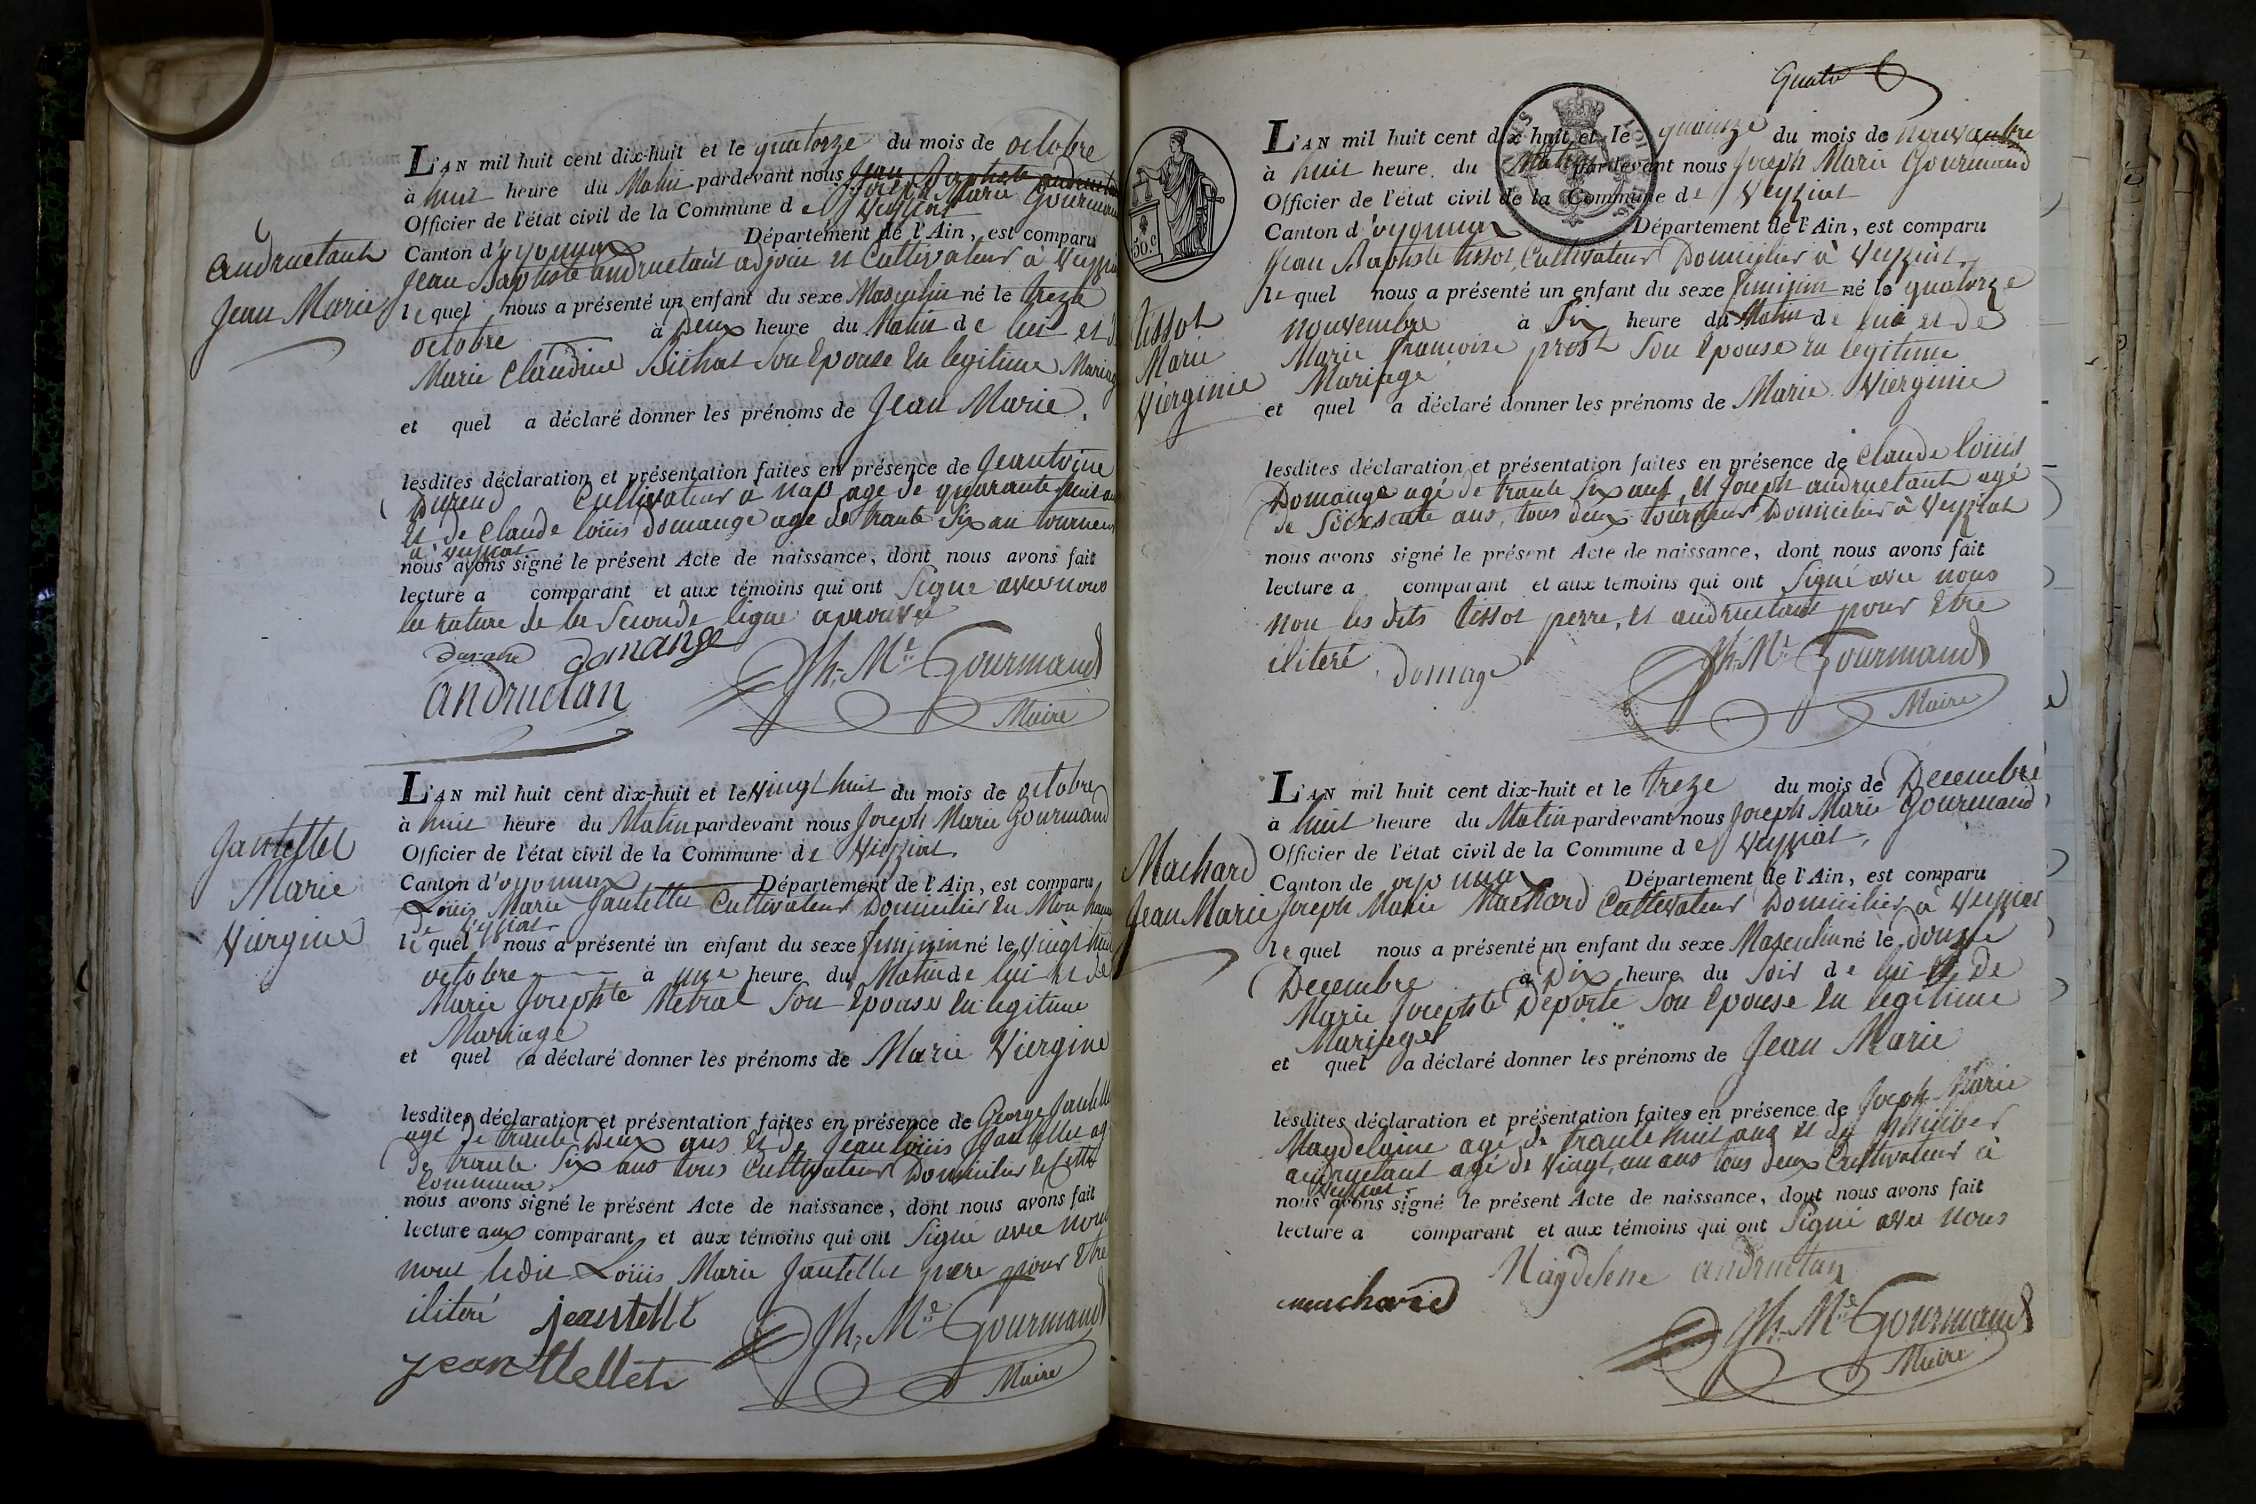 Andruetant
Jean Marie
L'AN mil huit cent dix-huit et le quatorze du mois de octobre
à huit heure du Matin pardevant nous Jean Baptiste andruetant
Joseph Marie Gourmand
Officier de l'état civil de la Commune de Veyziat
Canton d'oyonnax Département de l'Ain, est comparu
Jean Baptiste andruetant adjoin et Cultivateur à Veyziat
le quel nous a présenté un enfant du sexe Masculin né le treze
octobre à Deux heure du Matin de lui et de
Marie Claudine Bichat Son Epouse En legitime Mariage
et quel a déclaré donner les prénoms de Jean Marie.
lesdites déclaration et présentation faites en présence de Jeantoine
Durend Cultivateur a nap agé de quarante huit ans
Et de Claude loüis domange agé de trante Six an tourneur
a Veyziat
nous avons signé le présent Acte de naissance, dont nous avons fait
lecture a comparant et aux témoins qui ont Signé avec nous
la rature de la Seconde ligne aprouvé
durand domange
andruetan Jh. Mie Gourmand
Maire
Jantellet
Marie
Viergine
L'AN mil huit cent dix-huit et le vingt huit du mois de octobre
à huit heure du Matin pardevant nous Joseph Marie Gourmand
Officier de l'état civil de la Commune de Veyziat
Canton d'oyonnax Département de l'Ain, est comparu
Loüis Marie Jantellet Cultivateur Domicilier En
de Veyziat
le quel nous a présenté un enfant du sexe feminin né le vingt huit
octobre à une heure du Matin de lui et de
Marie Josephte Metral Son Epouse En legitime
Mariage
et quel a déclaré donner les prénoms de Marie Viergine
lesdites déclaration et présentation faites en présence de George Jantellet
agé de trante Deux ans et de Jean loüis Jantellet agé
de trante Six ans tous Cultivateur Domicilier de Cette
Commune.
nous avons signé le présent Acte de naissance, dont nous avons fait
lecture aux comparant et aux témoins qui ont Signé avec nous
nont ledit Loüis Marie Jantellet pere pour Etre
iliteré jeantellt
jeanttellet Jh. Mie Gourmand
Maire
Quatre
50.c
Tissot
Marie
Vierginie
L'AN mil huit cent dix-huit et le quinze du mois de nouvembre
à huit heure du Matin pardevant nous Joseph Marie Gourmand
Officier de l'état civil de la Commune de Veyziat
Canton d'oyonnax Département de l'Ain, est comparu
Jean Baptiste tissot, Cultivateur Domicilier à Veyziat,
le quel nous a présenté un enfant du sexe feminin né le quatorze
nouvembre à Six heure du Matin de lui et de
Marie francoise prost Son Epouse en legitime
Mariage
et quel a déclaré donner les prénoms de Marie Vierginie
lesdites déclaration et présentation faites en présence de Claude loüis
Domange agé de trante Six ans, et Joseph andruetant agé
de Soixsante ans, tous deux tourneur Domicilier à Veyziat
nous avons signé le présent Acte de naissance, dont nous avons fait
lecture a comparant et aux temoins qui ont Signé avec nous
non les dits tissot perre, et andruetant pour Etre
iliteré domage Jh. Mie Gourmand
Maire
Machard
Jean Marie
L'AN mil huit cent dix-huit et le treze du mois de Decembre
à huit heure du Matin pardevant nous Joseph Marie Gourmand
Officier de l'état civil de la Commune de Veyziat,
Canton de oyonnax Département de l'Ain, est comparu
Joseph Marie Machard Cultivateur Domicilier à Veyziat
le quel nous a présenté un enfant du sexe Masculin né le douze
Decembre à Dix heure du Soir de lui et de
Marie Josephte Deporte Son Epouse En legitime
Mariage
et quel a déclaré donner les prénoms de Jean Marie
lesdites déclaration et présentation faites en présence de Joseph Marie
Magdelaine agé de trante huit ans et de
andruetant agé de Vingt un ans tous deux Cultivateur à
Veyziat
nous avons signé le présent Acte de naissance, dont nous avons fait
lecture a comparant et aux témoins qui ont Signé avec nous
Magdelene andruetan
machard Jh. Mie Gourmand
Maire